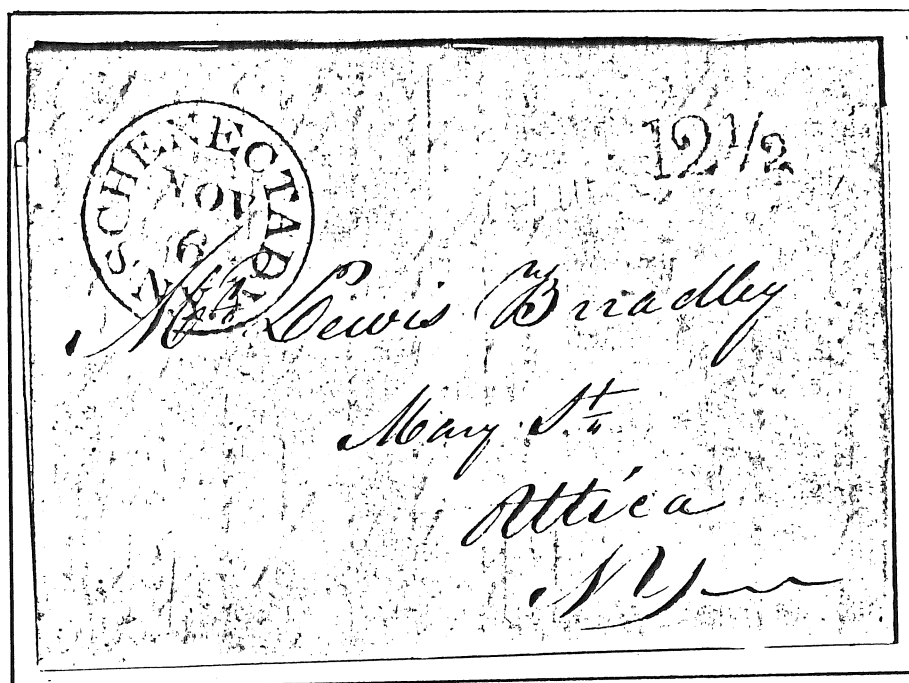 SCHENECTADY
NOV
6
N.Y.
12 1/2
Mr Lewis Bradley
Mary St
Attica
N Y